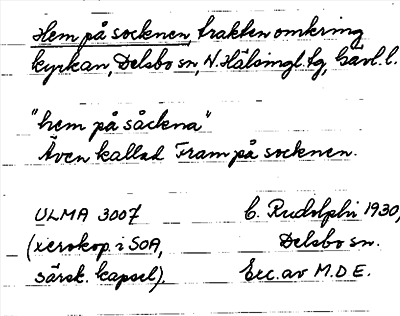 Hem på socknen, trakten omkring
kyrkan, Delsbo sn, N. Hälsingl. tg, Gävl. l.
"hem på såckna"
Även kallad Fram på socknen.
ULMA 3007 C. Rudolphi 1930,
(xerokop. i SOA, Delsbo sn.
särsk. kapsel). Exc. av M.D E.